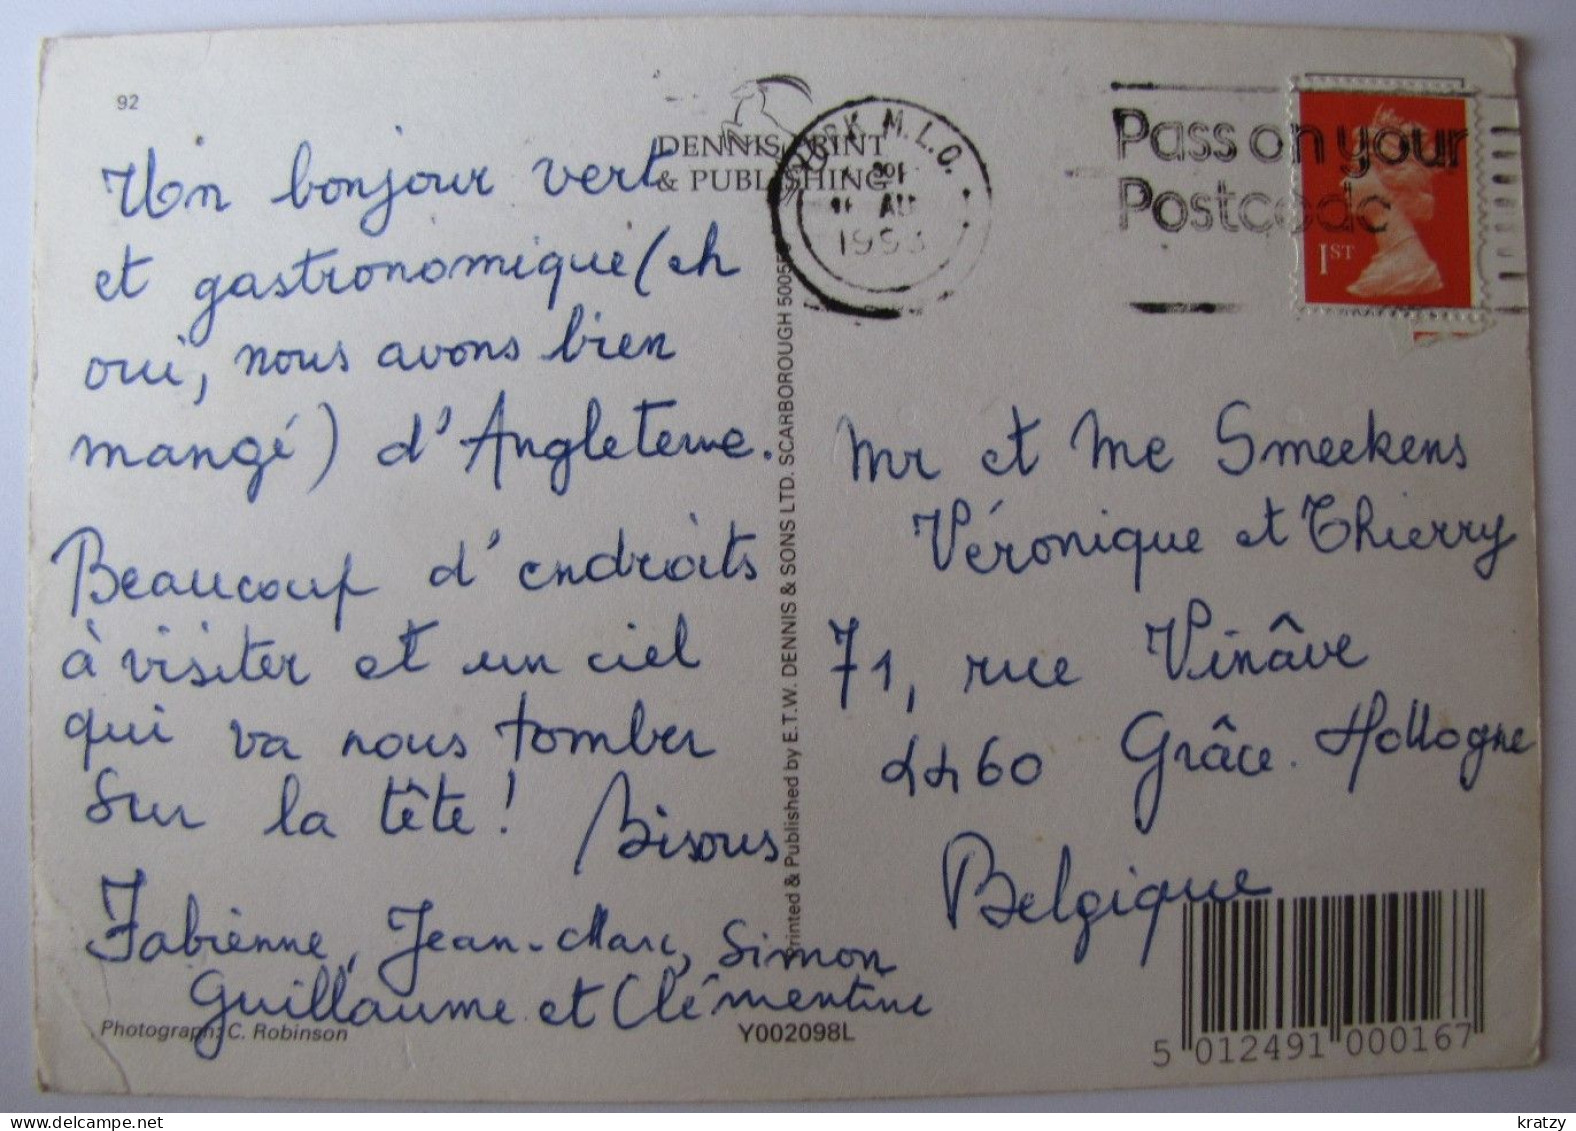 92
DENNIS PRINT
& PUBLISHING
YORK M.L.O.
AU
1993
Pass on your
Postcode
1ST
Un bonjour vert
et gastronomique (eh
oui, nous avons bien
mangé) d'Angleterre.
Beaucoup d'endroits
à visiter et un ciel
qui va nous tomber
sur la tête !
Bisous
Fabienne, Jean-Marc, Simon
Guillaume et Clémentine
Photograph: C. Robinson
Y002098L
Printed & Published by E.T.W. DENNIS & SONS LTD. SCARBOROUGH
Mr et Me Smeekens
Véronique et Thierry
71, rue Vinâve
4460 Grâce-Hollogne
Belgique
5 012491 000167
kratzy